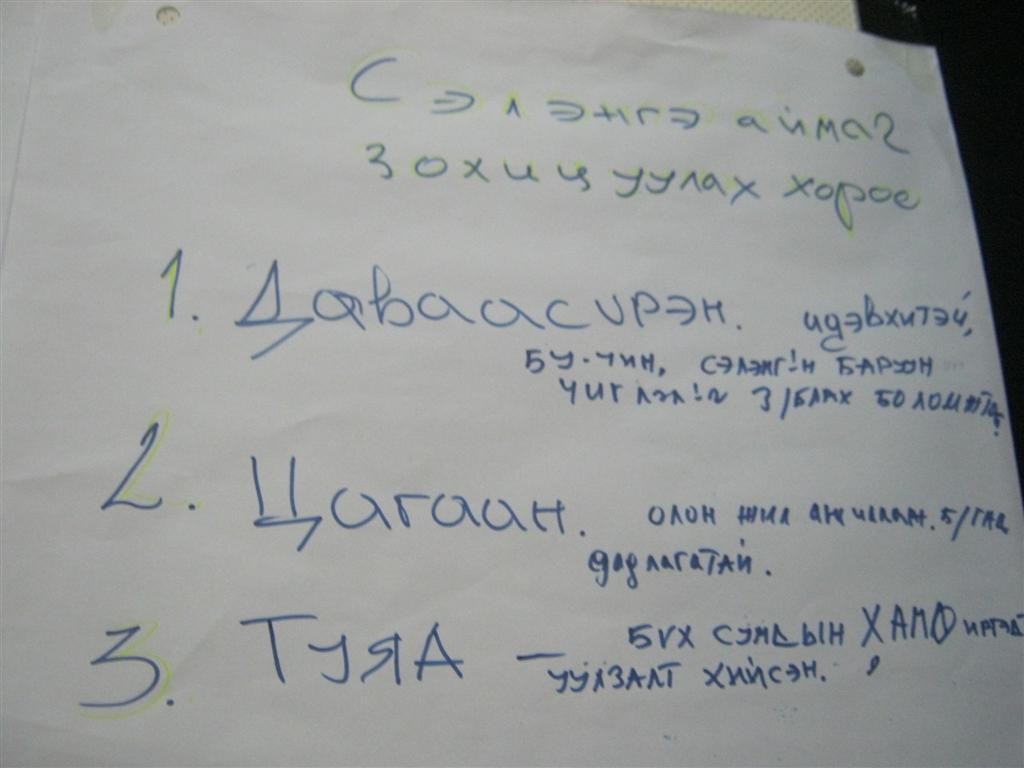 Сэлэнгэ аймаг
Зохицуулах хороо
1. Даваасүрэн. идэвхитэй,
БҮ-ЧИН, СЭЛЭНГ!Н БАРУУН
ЧИГЛЭЛ!Г З/БЛАХ БОЛОМЖТ
2. Цагаан. ОЛОН ЖИЛ
дадлагатай.
3. ТУЯА — БҮХ СУМДЫН ХАМО ИРГЭДТ
УУЛЗАЛТ ХИЙСЭН.